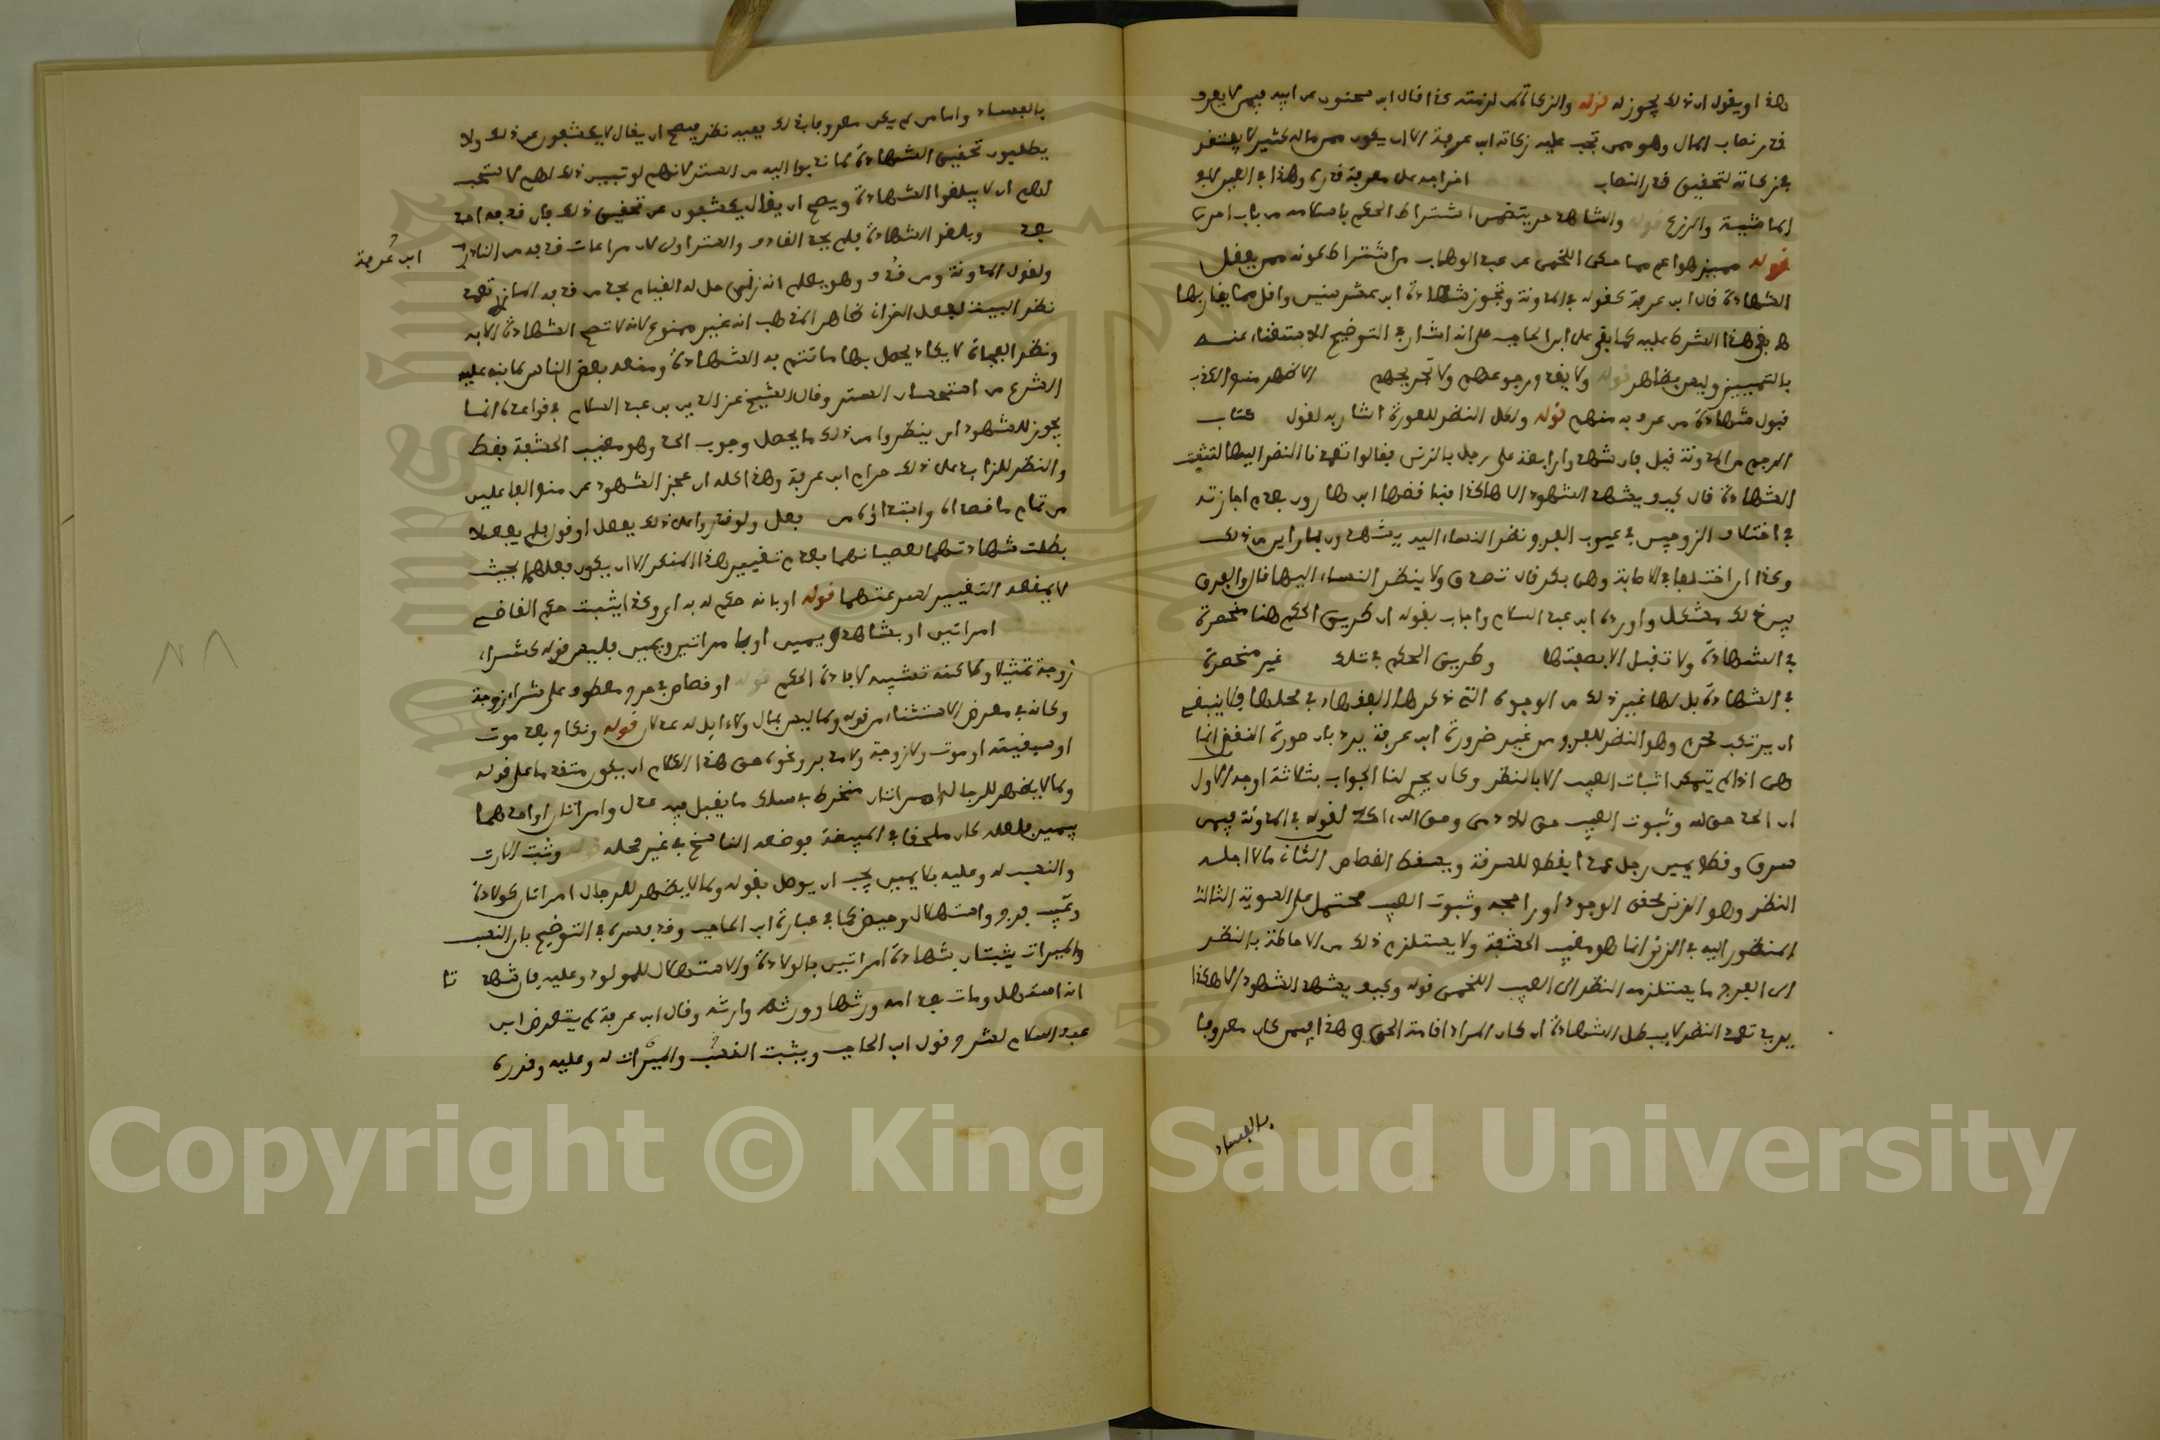 هذا او يقول ان ذلك يجوز له قوله والزكاة لمن لزمته كذا قال ابن سحنون عن ابيه فيمن لا يعرف
قدر نصاب المال وهو ممن تجب عليه زكاته ابن عرفة الا ان يكون ممن ماله كثير لا يفتقر
في زكاته لتحقيق قدر النصاب اخراجه على معرفة قدره وهذا في العين لا في
الماشية والزرع قوله والشاهد حر يتضمن اشتراط الحكم باسلامه من باب احرى
قوله مميز هو اعم مما حكى اللخمي عن عبد الوهاب من اشتراط كونه ممن يعقل
الشهادة قال ابن عرفة كقوله في المدونة وتجوز شهادة ابن عشر سنين واقل مما يقاربها
بقي هذا الشرط عليه كما بقي على ابن الحاجب على انه اشار في التوضيح للاستغناء عنه
بالتمييز وليس بظاهر قوله ولا يقدح رجوعهم ولا تجريحهم الاظهر منه الكذب
قبول شهادة من عرف به منهم قوله ولكل النظر للعورة اشار به لقول كتاب
الرجم من المدونة قيل فان شهد اربعة على رجل بالزنى فقالوا تعمدنا النظر اليها لتثبت
الشهادة قال كيف يشهد الشهود الا هكذا فناقضها ابن هارون بعدم اجازته
في اختلاف الزوجين في عيوب الفرج نظر النساء اليه يشهدن بما راين من ذلك
وكذا ان اختلفا في الاصابة وهي بكر قال تصدق ولا ينظر النساء اليها قال والفرق
بين ذلك مشكل واورده ابن عبد السلام واجاب بقوله ان طريق الحكم هنا منحصرة
في الشهادة ولا تقبل الا بصفتها وطريق الحكم في تلك غير منحصرة
في الشهادة بل لها غير ذلك من الوجوه التي ذكرها الفقهاء في محلها فلا ينبغي
ان يرتكب محرم وهو النظر للفرج من غير ضرورة ابن عرفة يرد بان صورة النقض انما
هي اذا لم يمكن اثبات العيب الا بالنظر وكان يجري لنا الجواب بثلاثة اوجه الاول
ان الحد حق لله وثبوت العيب حق للادمي وحق الله اكد لقوله في المدونة فيمن
سرق وقطع يمين رجل عمدا يقطع للسرقة ويسقط القصاص الثاني ما لاجله
النظر وهو الزنى محقق الوجود او راجحه وثبوت العيب محتمل على السوية الثالث
المنظور اليه في الزنى انما هو مغيب الحشفة ولا يستلزم ذلك من الاحاطة بالنظر
الى الفرج ما يستلزمه النظر الى العيب اللخمي قوله وكيف يشهد الشهود الا هكذا
يريد تعمد النظر لا يبطل الشهادة ان كان المراد اقامة الحد وهذا فيمن كان معروفا
بالفساد
بالفساد واما من لم يكن معروفا بذلك ففيه نظر فيصح ان يقال لا يكشفون عن ذلك ولا
يطلبون تحقيق الشهادة لما ندبوا اليه من الستر لانهم لو تبين ذلك لهم لاستحب
لهم ان لا يبلغوا الشهادة ويصح ان يقال يكشفون عن تحقيق ذلك فان قذفه احد
بعد وبلغوا الشهادة فلم يحد القاذف والستر اولى لان مراعات قذفه من النادر
ابن عرفة
ولقول المدونة ومن قذف وهو يعلم انه زنى حل له القيام بحد من قذفه المازري تعمد
نظر البينة لفعل الزاني ظاهر المذهب انه غير ممنوع لانه لا تصح الشهادة الا به
ونظر الفجاة لا يكاد يحصل بها ما تتم به الشهادة ومنعه بعض الناس لما نبه عليه
الشرع من استحسان الستر وقال الشيخ عز الدين بن عبد السلام في قواعده انما
يجوز للشهود ان ينظروا من ذلك ما يحصل وجوب الحد وهو مغيب الحشفة فقط
والنظر للزائد على ذلك حرام ابن عرفة وهذا كله ان عجز الشهود عن منع الفاعلين
من تمام ما قصداه وابتدائه من فعل ولو قدروا على ذلك بفعل او قول فلم يفعلوا
بطلت شهادتهما لعصيانهما بعدم تغيير هذا المنكر الا ان يكون فعلهما بحيث
لا يمنعه التغيير لسرعتهما قوله او بانه حكم له به اي وكذا يثبت حكم القاضي
امراتين او بشاهد ويمين او بامراتين ويمين فليس قوله كشراء
زوجة تمثيلا ولكنه تشبيه لافادة الحكم قوله او قصاص في جرح معطوف على شراء زوجة
وكانه في معرض الاستثناء من قوله ولما ليس بمال ولا ايل له عدلان قوله ونكاح بعد موت
او سبقيته او موت ولا زوجة ولا مدبر ونحوه حق هذا الكلام ان يكون متقدما على قوله
ولما لا يظهر للرجال امراتان منخرط في سلك ما يقبل فيه عدل وامراتان او احدهما
بيمين فلعله كان ملحقا في المبيضة فوضعه الناسخ في غير محله قوله وثبت الارث
والنسب له وعليه بلا يمين يجب ان يوصل بقوله ولما لا يظهر للرجال امراتان كولادة
وعيب فرج واستهلال وحيض كما في عبارة ابن الحاجب وقد فسره في التوضيح بان النسب
والميراث يثبتان بشهادة امراتين بالولادة والاستهلال للمولود وعليه فان شهدتا
انه استهل ومات بعد امه ورثها وورثه وارثه وقال ابن عرفة لم يتعرض ابن
عبد السلام لشرح قول ابن الحاجب ويثبت النسب والميراث له وعليه وقرره
Copyright © King Saud University
1957